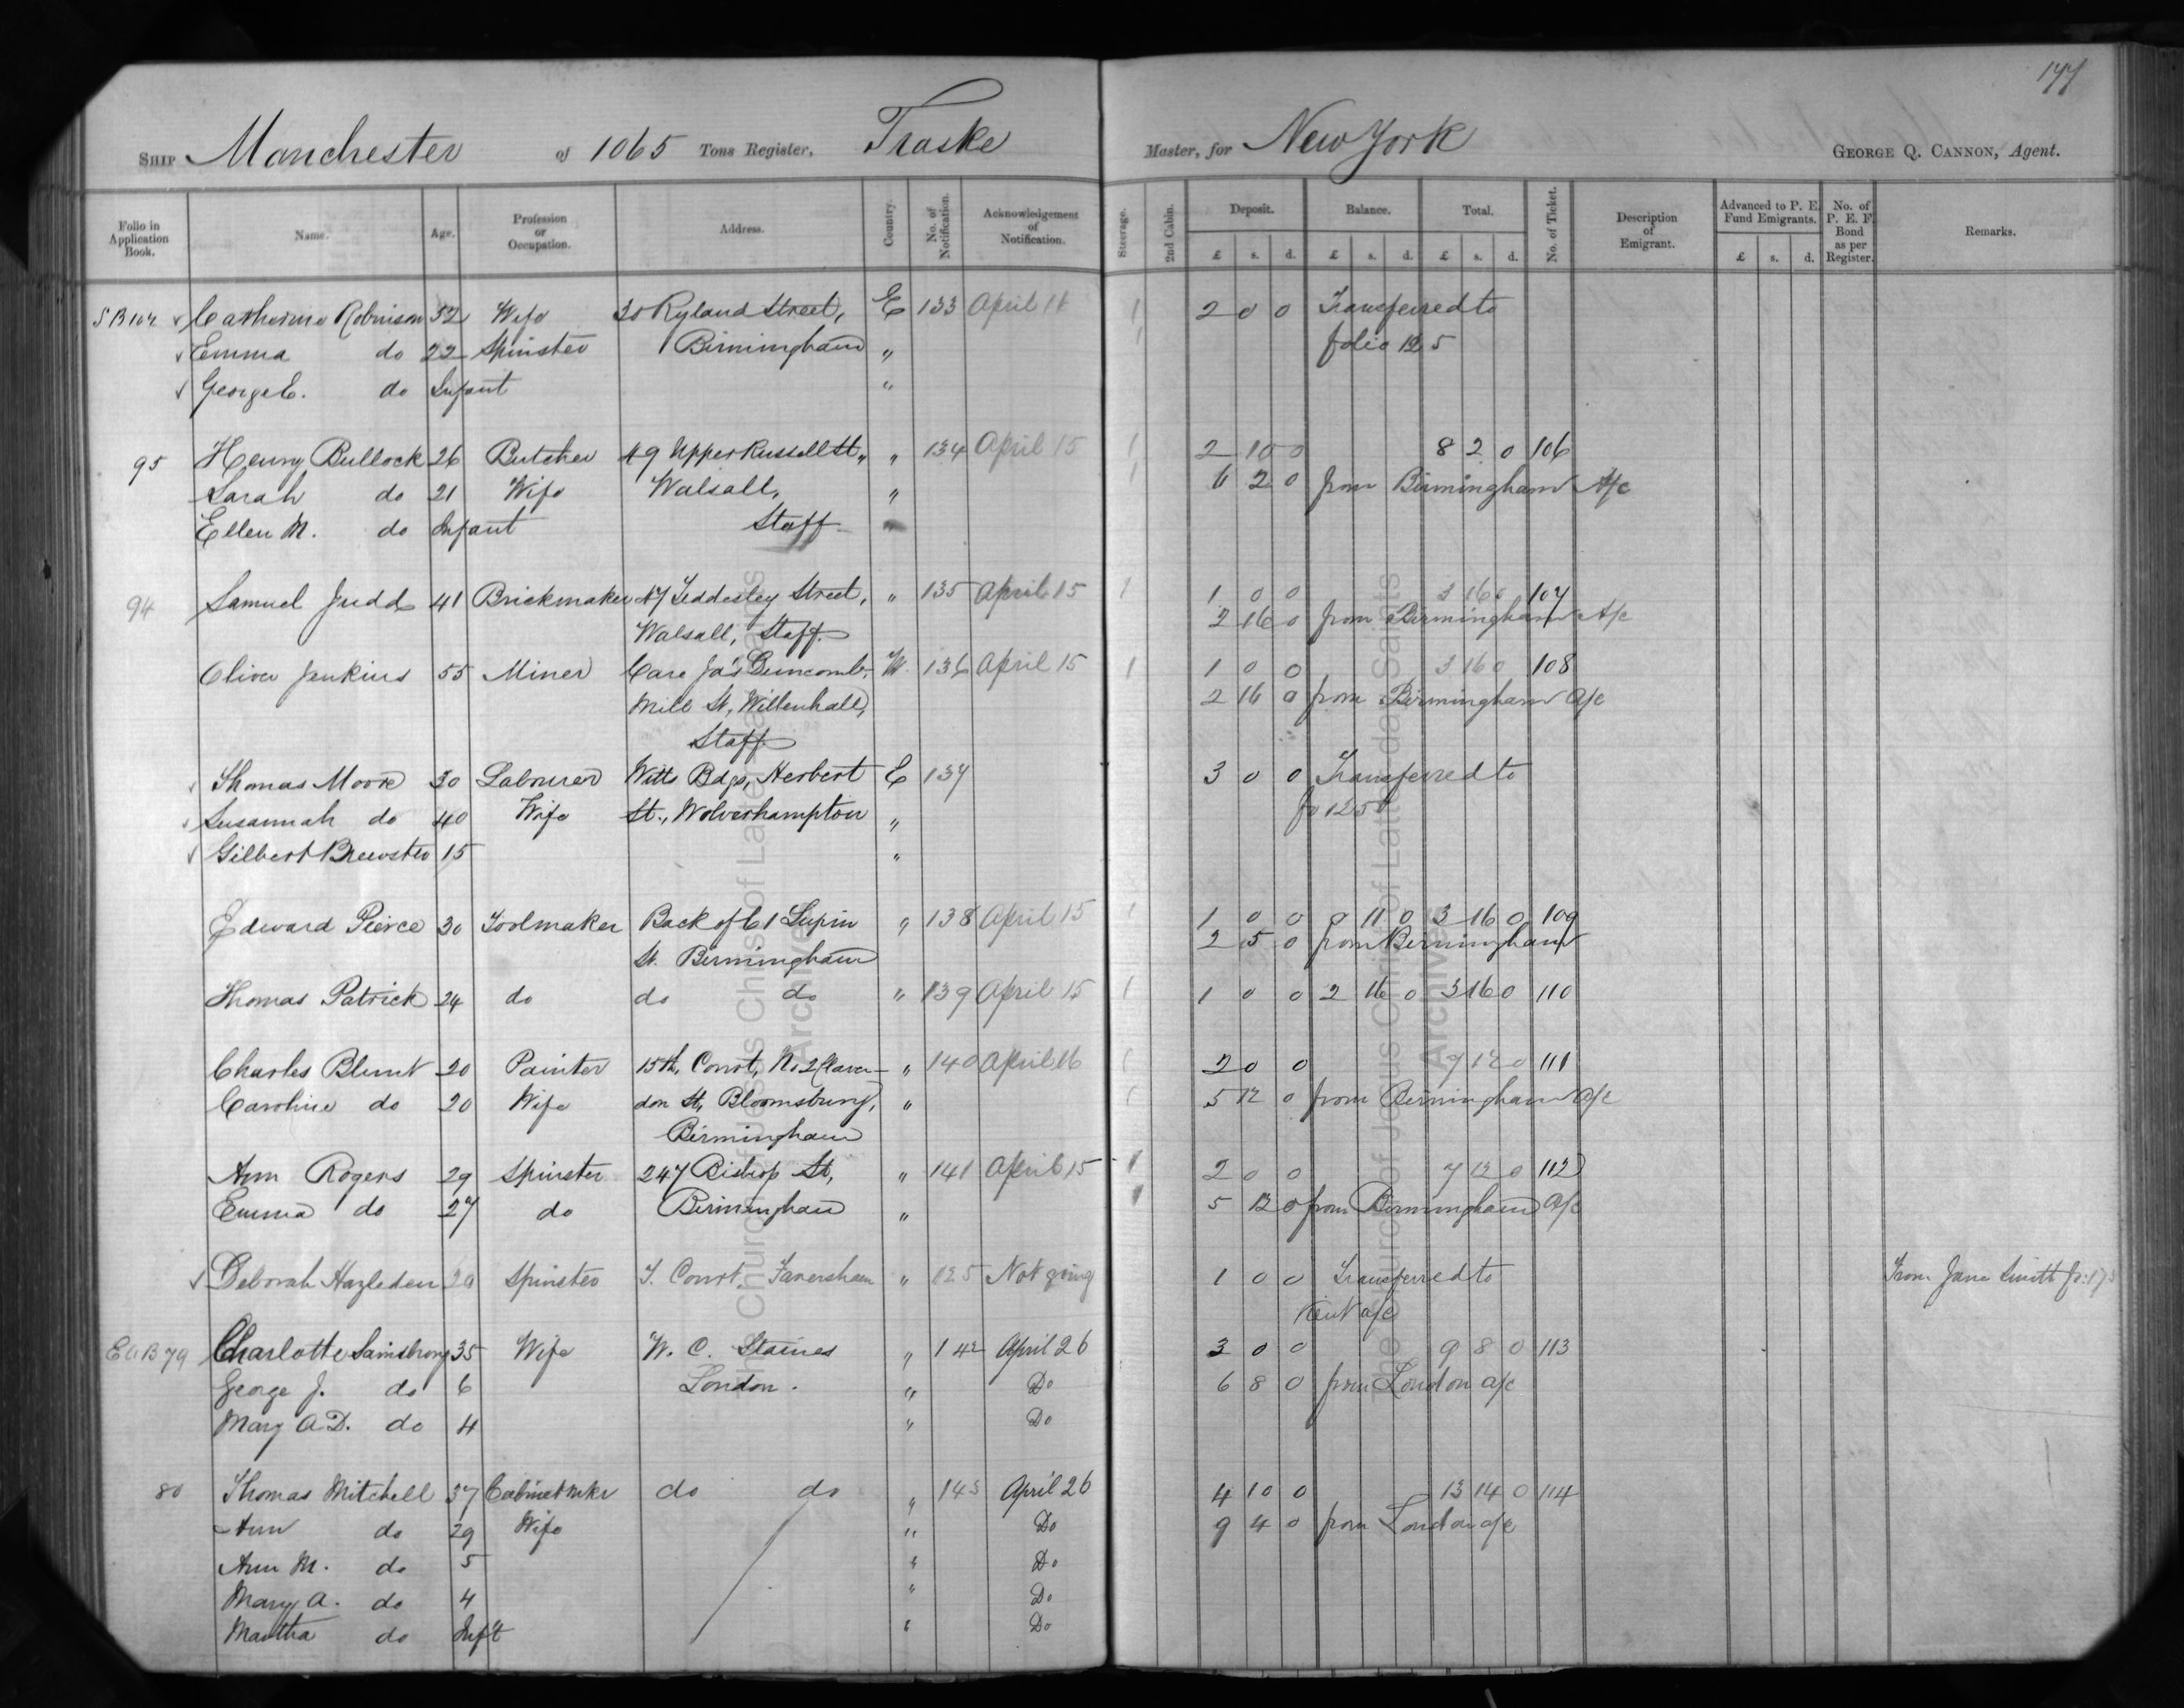 177
SHIP Manchester of 1065 Tons Register, Traske Master, for New York GEORGE Q. CANNON, Agent.
Folio in Application Book. Name. Age. Profession or Occupation. Address. Country. No. of Notification. Acknowledgement of Notification. Steerage. 2nd Cabin. Deposit. Balance. Total. No. of Ticket. Description of Emigrant. Advanced to P. E. Fund Emigrants. No. of P. E. F. Bond as per Register. Remarks.
£ s. d. £ s. d. £ s. d. £ s. d.
Catherine Robinson 52 Wife 30 Ryland Street, E 133 April 1 2 0 0 Transferred to
Emma do 22 Spinster Birmingham " 1 folio 125
George E. do Infant "
95 Henry Bullock 26 Butcher 49 Upper Russell St., " 134 April 15 1 2 10 0 8 2 0 106
Sarah do 21 Wife Walsall, " 1 6 2 0 from Birmingham A/c
Ellen M. do Infant Staff
94 Samuel Judd 41 Brickmaker 47 Teddesley Street, " 135 April 15 1 1 0 0 3 16 0 107
Walsall, Staff. 2 16 0 from Birmingham A/c
Oliver Jenkins 55 Miner Care Jas Duncomb, W. 136 April 15 1 1 0 0 3 16 0 108
Mill St, Willenhall, 2 16 0 from Birmingham a/c
Staff
Thomas Moore 30 Labourer Witts Bdgs, Herbert E 137 3 0 0 Transferred to
Susannah do 40 Wife St., Wolverhampton " fo 125
Gilbert Brewster 15 "
Edward Pierce 30 Toolmaker Back of 61 Lupin " 138 April 15 1 1 0 0 0 11 0 3 16 0 109
St. Birmingham 2 5 0 from Birmingham
Thomas Patrick 24 do do do " 139 April 15 1 1 0 0 2 16 0 3 16 0 110
Charles Blunt 20 Painter 15th, Court, No 2 Claver- " 140 April 16 1 2 0 0 7 12 0 111
Caroline do 20 Wife don St, Bloomsbury, " 1 5 12 0 from Birmingham a/c
Birmingham
Ann Rogers 29 Spinster 247 Bishop St, " 141 April 15 1 2 0 0 7 12 0 112
Emma do 27 do Birmingham " 1 5 12 0 from Birmingham a/c
Deborah Hazleden 20 Spinster T. Court, Faversham " 125 Not going 1 0 0 Transferred to From Jane Smith fo. 173
Kent a/c
79 Charlotte Sainsbury 35 Wife W. C. Staines " 142 April 26 3 0 0 9 8 0 113
George J. do 6 London. " Do 6 8 0 from London a/c
Mary A. D. do 4 " Do
80 Thomas Mitchell 37 Cabinet mkr do do " 143 April 26 4 10 0 13 14 0 114
Ann do 29 Wife " Do 9 4 0 from London a/c
Ann M. do 5 " Do
Mary A. do 4 " Do
Martha do Inft " Do
The Church of Jesus Christ of Latter-day Saints
Archives
The Church of Jesus Christ of Latter-day Saints
Archives